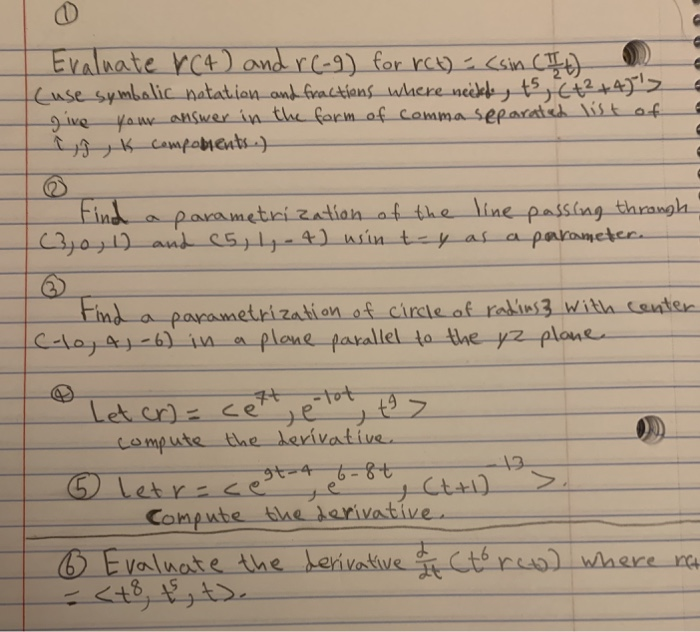 ①
Evaluate r(4) and r(-9) for r(t) = <sin (π/2 t)
(use symbolic notation and fractions where needed, t⁵, (t²+4)⁻¹>
give your answer in the form of comma separated list of
î, ĵ, k components.)
②
Find a parametrization of the line passing through
(3,0,1) and (5,1,-4) usin t=y as a parameter.
③
Find a parametrization of circle of radius 3 with center
(-10, 4, -6) in a plane parallel to the yz plane
④
Let (r) = <e⁷ᵗ, e⁻¹⁰ᵗ, t⁹>
compute the derivative.
⑤ Let r = <e⁹ᵗ⁻⁴, e⁶⁻⁸ᵗ, (t+1)⁻¹³>.
Compute the derivative.
⑥ Evaluate the derivative d/dt (t⁶ r(t)) where r(t
= <t⁸, t⁵, t>.